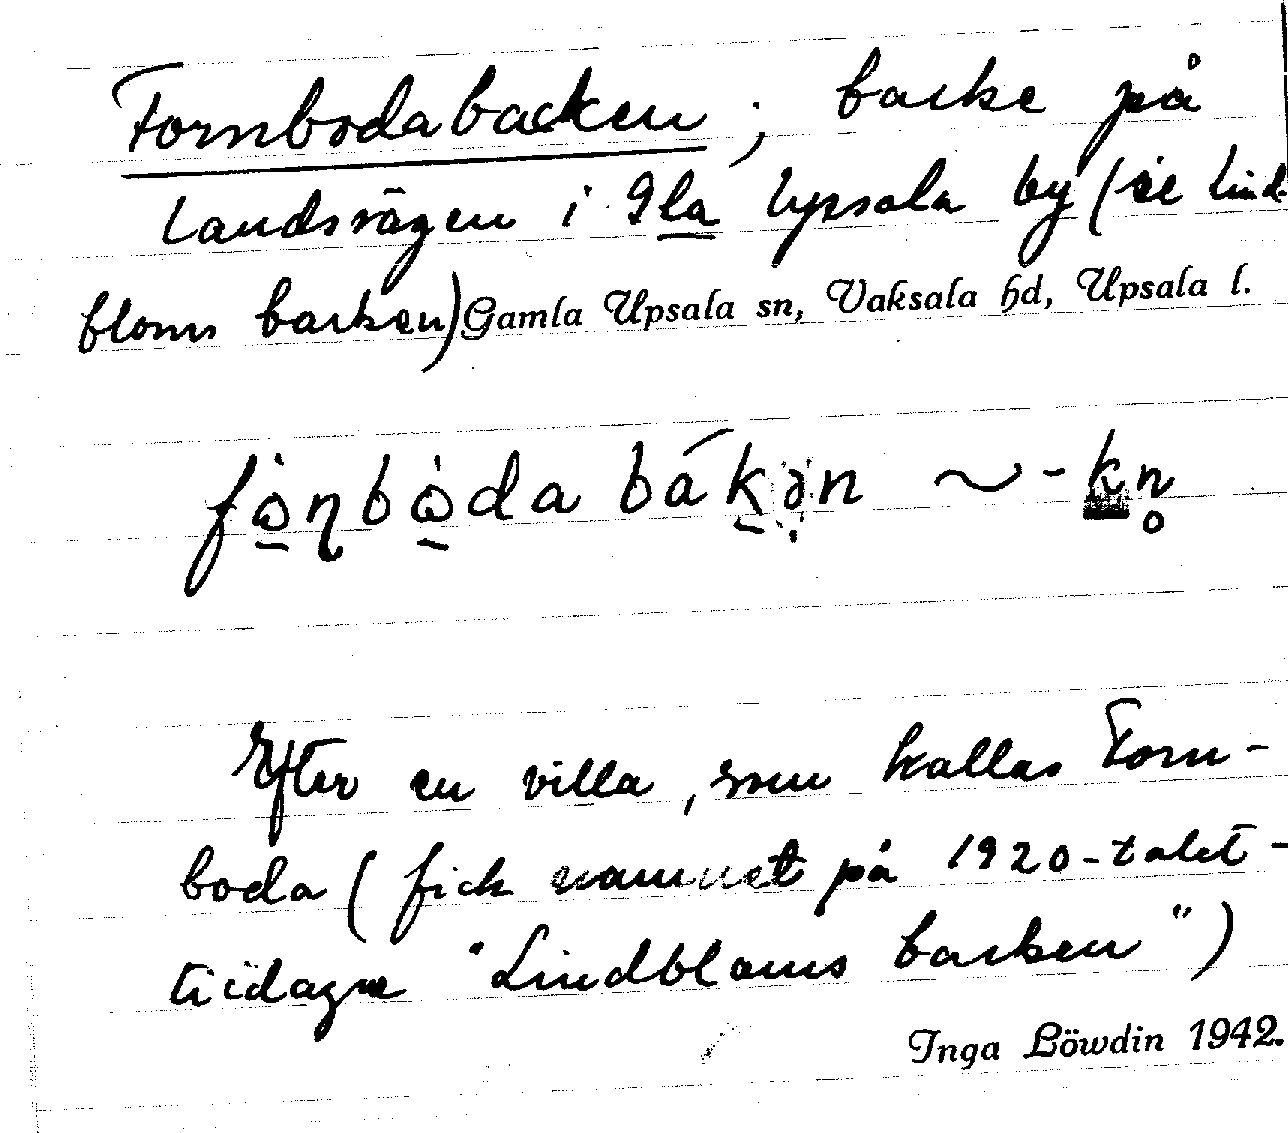 Fornbodabacken; backe på
landsvägen i Gla Upsala by (se Lind-
bloms backen) Gamla Upsala sn, Vaksala hd, Upsala l.
fò̱ɳbò̱da bákən ~ -kn̥
Efter en villa, som kallas Forn-
boda (fick namnet på 1920-talet -
tidagre "Lindbloms backen")
Inga Löwdin 1942.